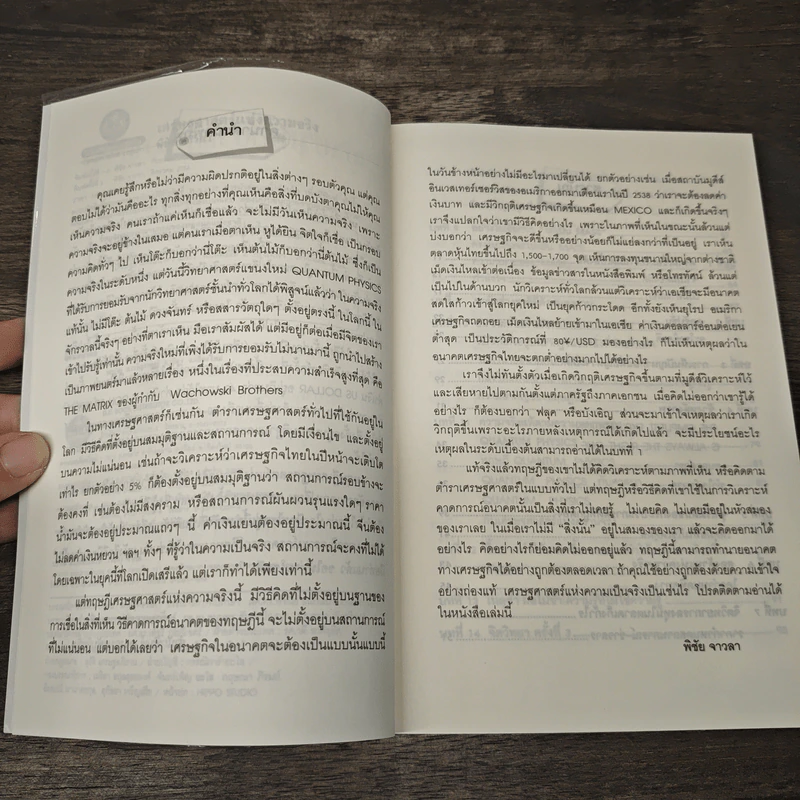 คำนำ
คุณเคยรู้สึกหรือไม่ว่ามีความผิดปรกติอยู่ในสิ่งต่างๆ รอบตัวคุณ แต่คุณ
ตอบไม่ได้ว่ามันคืออะไร ทุกสิ่งทุกอย่างที่คุณเห็นคือสิ่งที่บดบังตาคุณไม่ให้คุณ
เห็นความจริง คนเราถ้าแค่เห็นก็เชื่อแล้ว จะไม่มีวันเห็นความจริง เพราะ
ความจริงจะอยู่ข้างในเสมอ แต่คนเราเมื่อตาเห็น หูได้ยิน จิตใจก็เชื่อ เป็นกรอบ
ความคิดทั่วๆ ไป เห็นโต๊ะก็บอกว่านี่โต๊ะ เห็นต้นไม้ก็บอกว่านี่ต้นไม้ ซึ่งก็เป็น
ความจริงในระดับหนึ่ง แต่วันนี้วิทยาศาสตร์แขนงใหม่ QUANTUM PHYSICS
ที่ได้รับการยอมรับจากนักวิทยาศาสตร์ชั้นนำทั่วโลกได้พิสูจน์แล้วว่า ในความจริง
แท้นั้น ไม่มีโต๊ะ ต้นไม้ ดวงจันทร์ หรือสสารวัตถุใดๆ ตั้งอยู่ตรงนี้ ในโลกนี้ ใน
จักรวาลนี้จริงๆ อย่างที่ตาเราเห็น มือเราสัมผัสได้ แต่มีอยู่ก็ต่อเมื่อมีจิตของเรา
เข้าไปรับรู้เท่านั้น ความจริงใหม่ที่เพิ่งได้รับการยอมรับไม่นานมานี้ ถูกนำไปสร้าง
เป็นภาพยนตร์มาแล้วหลายเรื่อง หนึ่งในเรื่องที่ประสบความสำเร็จสูงที่สุด คือ
THE MATRIX ของผู้กำกับ Wachowski Brothers
ในทางเศรษฐศาสตร์ก็เช่นกัน ตำราเศรษฐศาสตร์ทั่วไปที่ใช้กันอยู่ใน
โลก มีวิธีคิดที่ตั้งอยู่บนสมมุติฐานและสถานการณ์ โดยมีเงื่อนไข และตั้งอยู่
บนความไม่แน่นอน เช่นถ้าจะวิเคราะห์ว่าเศรษฐกิจไทยในปีหน้าจะเติบโต
เท่าไร ยกตัวอย่าง 5% ก็ต้องตั้งอยู่บนสมมุติฐานว่า สถานการณ์รอบข้างจะ
ต้องคงที่ เช่นต้องไม่มีสงคราม หรือสถานการณ์ผันผวนรุนแรงใดๆ ราคา
น้ำมันจะต้องอยู่ประมาณแถวๆ นี้ ค่าเงินเยนต้องอยู่ประมาณนี้ จีนต้อง
ไม่ลดค่าเงินหยวน ฯลฯ ทั้งๆ ที่รู้ว่าในความเป็นจริง สถานการณ์จะคงที่ไม่ได้
โดยเฉพาะในยุคนี้ที่โลกเปิดเสรีแล้ว แต่เราก็ทำได้เพียงเท่านี้
แต่ทฤษฎีเศรษฐศาสตร์แห่งความจริงนี้ มีวิธีคิดที่ไม่ตั้งอยู่บนฐานของ
การเชื่อในสิ่งที่เห็น วิธีคาดการณ์อนาคตของทฤษฎีนี้ จะไม่ตั้งอยู่บนสถานการณ์
ที่ไม่แน่นอน แต่บอกได้เลยว่า เศรษฐกิจในอนาคตจะต้องเป็นแบบนั้นแบบนี้
ในวันข้างหน้าอย่างไม่มีอะไรมาเปลี่ยนได้ ยกตัวอย่างเช่น เมื่อสถาบันมูดีส์
อินเวสเทอร์เซอร์วิสของอเมริกาออกมาเตือนเราในปี 2538 ว่าเราจะต้องลดค่า
เงินบาท และมีวิกฤติเศรษฐกิจเกิดขึ้นเหมือน MEXICO และก็เกิดขึ้นจริงๆ
เราจึงแปลกใจว่าเขามีวิธีคิดอย่างไร เพราะในภาพที่เห็นในขณะนั้นล้วนแต่
บ่งบอกว่า เศรษฐกิจจะดีขึ้นหรืออย่างน้อยก็ไม่แย่ลงกว่าที่เป็นอยู่ เราเห็น
ตลาดหุ้นไทยขึ้นไปถึง 1,500-1,700 จุด เห็นการลงทุนขนานใหญ่จากต่างชาติ
เม็ดเงินไหลเข้าต่อเนื่อง ข้อมูลข่าวสารในหนังสือพิมพ์ หรือโทรทัศน์ ล้วนแต่
เป็นไปในด้านบวก นักวิเคราะห์ทั่วโลกล้วนแต่วิเคราะห์ว่าเอเชียจะมีอนาคต
สดใสก้าวเข้าสู่โลกยุคใหม่ เป็นยุคก้าวกระโดด อีกทั้งยังเห็นยุโรป อเมริกา
เศรษฐกิจถดถอย เม็ดเงินไหลย้ายเข้ามาในเอเซีย ค่าเงินดอลลาร์อ่อนต่อเยน
ต่ำสุด เป็นประวัติการณ์ที่ 80¥/USD มองอย่างไร ก็ไม่เห็นเหตุผลว่าใน
อนาคตเศรษฐกิจไทยจะตกต่ำอย่างมากไปได้อย่างไร
เราจึงไม่ทันตั้งตัวเมื่อเกิดวิกฤติเศรษฐกิจขึ้นตามที่มูดีส์วิเคราะห์ไว้
และเสียหายไปตามกันตั้งแต่ภาครัฐถึงภาคเอกชน เมื่อคิดไม่ออกว่าเขารู้ได้
อย่างไร ก็ต้องบอกว่า ฟลุค หรือบังเอิญ ส่วนจะมาเข้าใจเหตุผลว่าเราเกิด
วิกฤติขึ้นเพราะอะไรภายหลังเหตุการณ์ได้เกิดไปแล้ว จะมีประโยชน์อะไร
เหตุผลในระดับเบื้องต้นสามารถอ่านได้ในบทที่ 1
แท้จริงแล้วทฤษฎีของเขาไม่ได้คิดวิเคราะห์ตามภาพที่เห็น หรือคิดตาม
ตำราเศรษฐศาสตร์ในแบบทั่วไป แต่ทฤษฎีหรือวิธีคิดที่เขาใช้ในการวิเคราะห์
คาดการณ์อนาคตนั้นเป็นสิ่งที่เราไม่เคยรู้ ไม่เคยคิด ไม่เคยมีอยู่ในหัวสมอง
ของเราเลย ในเมื่อเราไม่มี "สิ่งนั้น" อยู่ในสมองของเรา แล้วจะคิดออกมาได้
อย่างไร คิดอย่างไรก็ย่อมคิดไม่ออกอยู่แล้ว ทฤษฎีนี้สามารถทำนายอนาคต
ทางเศรษฐกิจได้อย่างถูกต้องตลอดเวลา ถ้าคุณใช้อย่างถูกต้องด้วยความเข้าใจ
อย่างถ่องแท้ เศรษฐศาสตร์แห่งความเป็นจริงเป็นเช่นไร โปรดติดตามอ่านได้
ในหนังสือเล่มนี้
พิชัย จาวลา